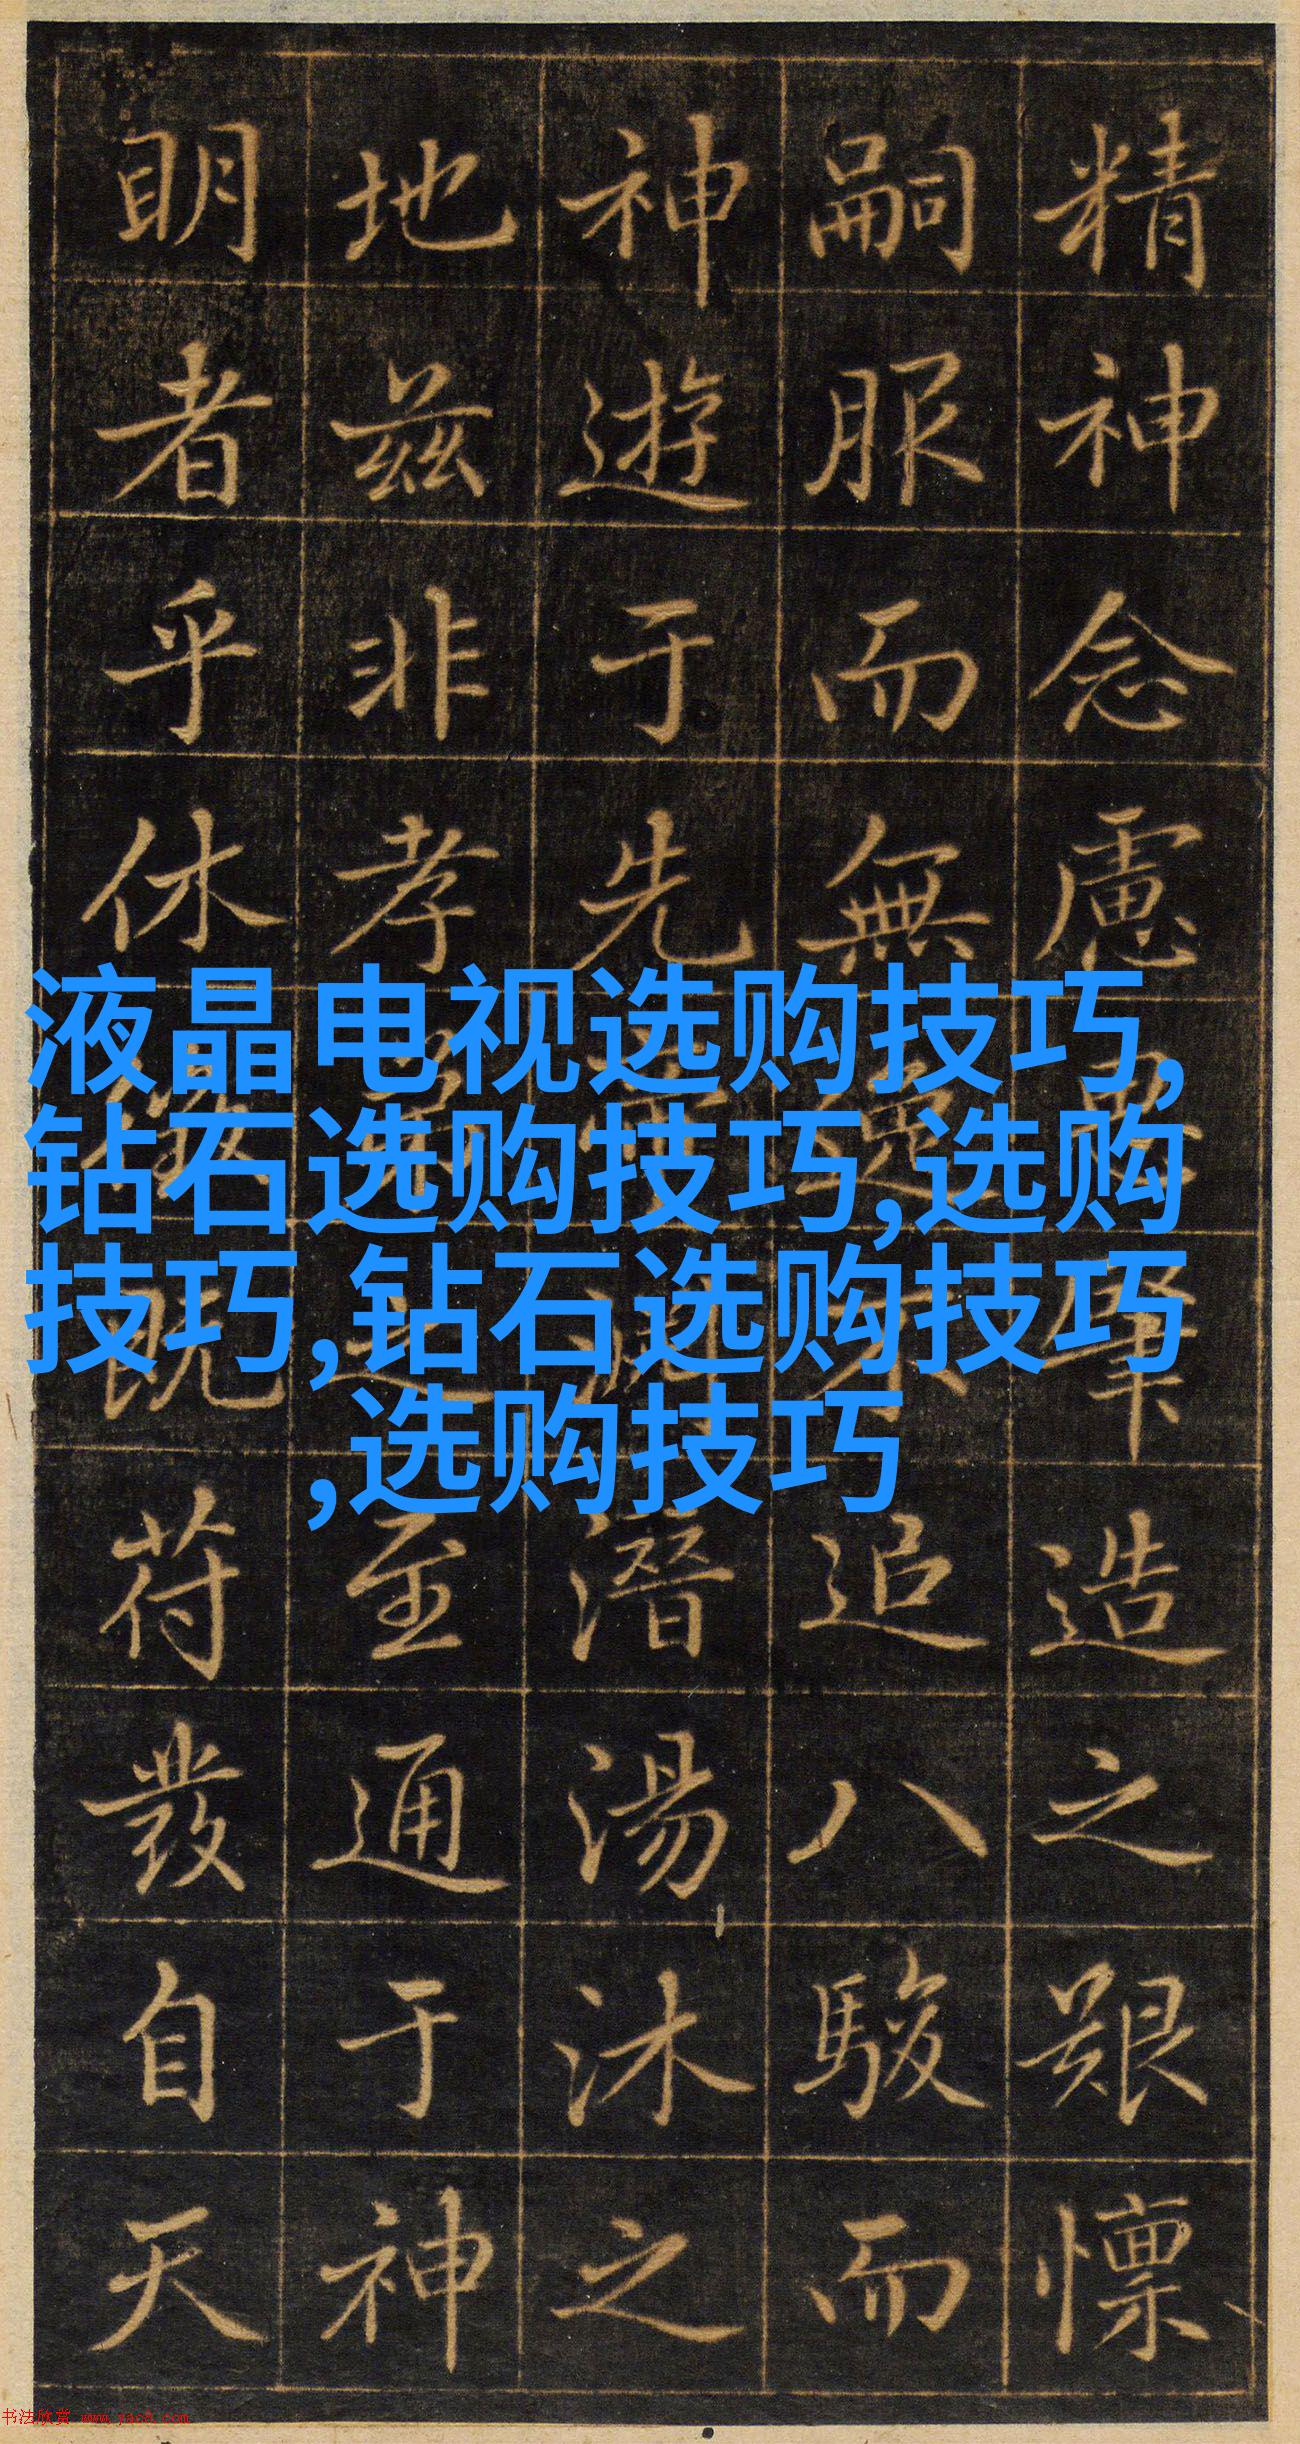 精神念慮肇造之艱懍
嗣服而無逸不追八駿而
神遊于先潛湯沐之
地茲非孝弟之至通于神
明者乎休徵既苻發自天
液晶电视选购技巧,
钻石选购技巧,选购
技巧,钻石选购技巧
,选购技巧
书法欣赏 www.yac8.com